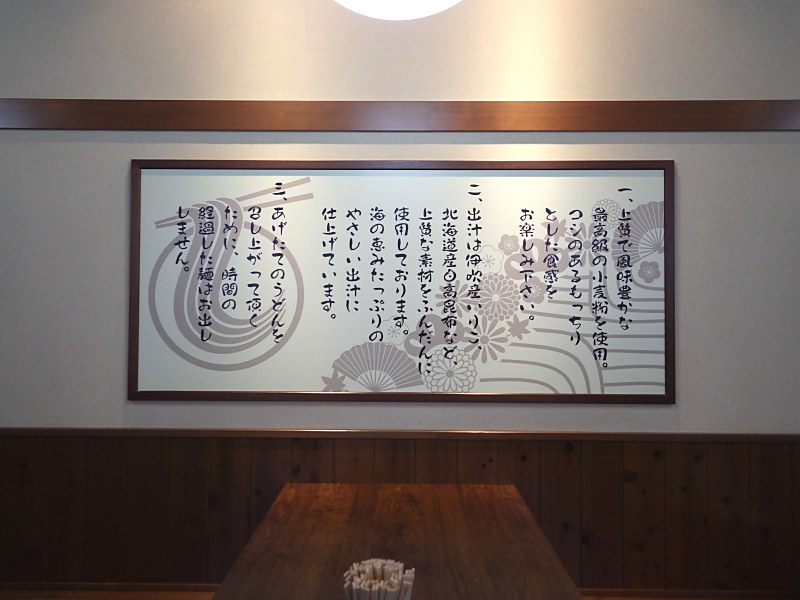 一、上質で風味豊かな
最高級の小麦粉を使用。
コシのあるもっちり
とした食感を
お楽しみ下さい。
二、出汁は伊吹産いりこ、
北海道産白高昆布など、
上質な素材をふんだんに
使用しております。
海の恵みたっぷりの
やさしい出汁に
仕上げています。
三、あげたてのうどんを
召し上がって頂く
ために、時間の
経過した麺はお出し
しません。